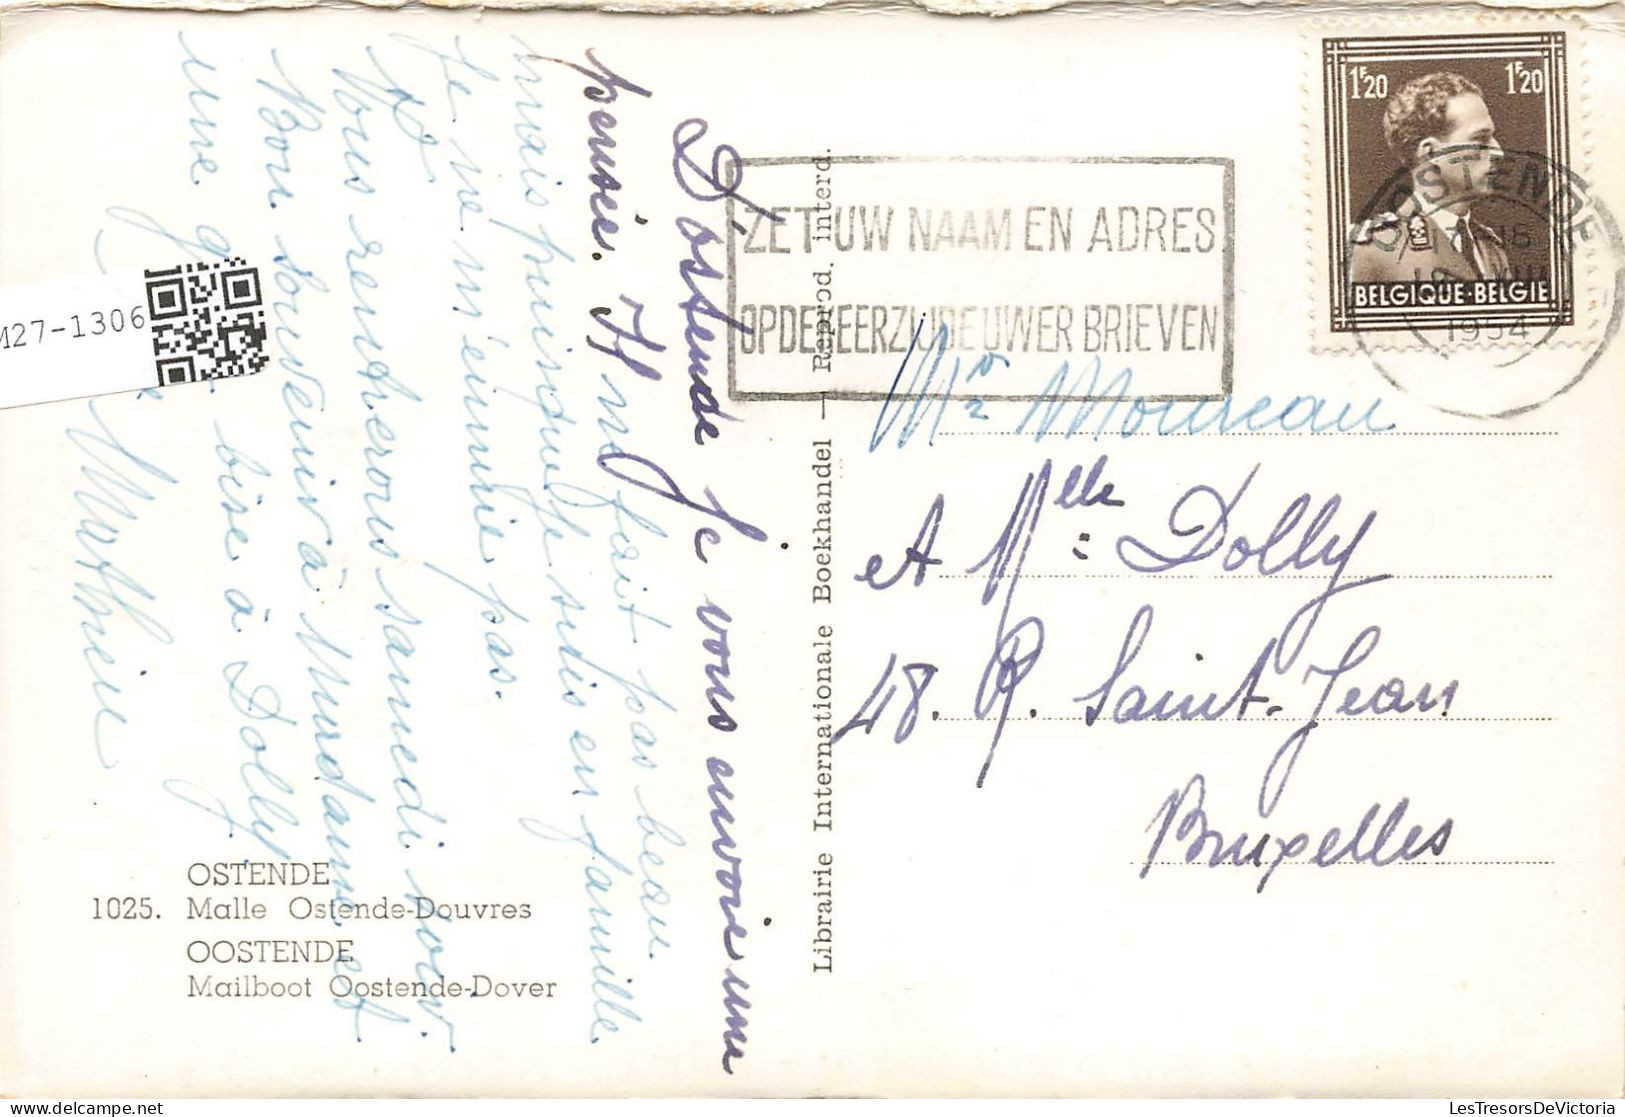 D'ostende Je vous envoie une
pensée. Il ne fait pas beau
mais puisque je suis en famille
Je ne m'ennuie pas.
Vous rentrerons samedi soir
Bon souvenir à Madame et
une bise à Dolly
Mathieu
M27-1306
OSTENDE
1025. Malle Ostende-Douvres
OOSTENDE
Mailboot Oostende-Dover
Librairie Internationale Boekhandel — Reprod. interd.
ZET UW NAAM EN ADRES
OP DE KEERZIJDE UWER BRIEVEN
1F20 1F20
BELGIQUE·BELGIE
OOSTENDE
1954
Mr Moureau
et Melle Dolly
48. R. Saint-Jean
Bruxelles
LesTresorsDeVictoria.com